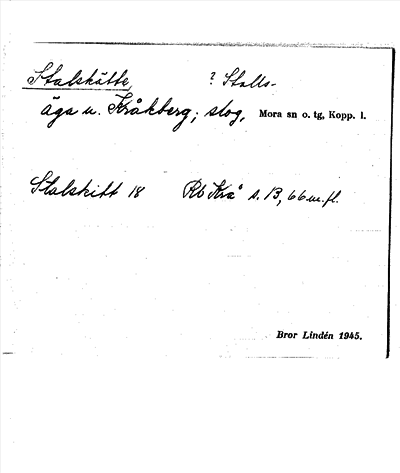 Stalskötte, ? Stalls-
äga u. Kråkberg; slog, Mora sn o. tg, Kopp. l.
Stalskitt 18 Rb Krå s. 13, 66 m.fl.
Bror Lindén 1945.